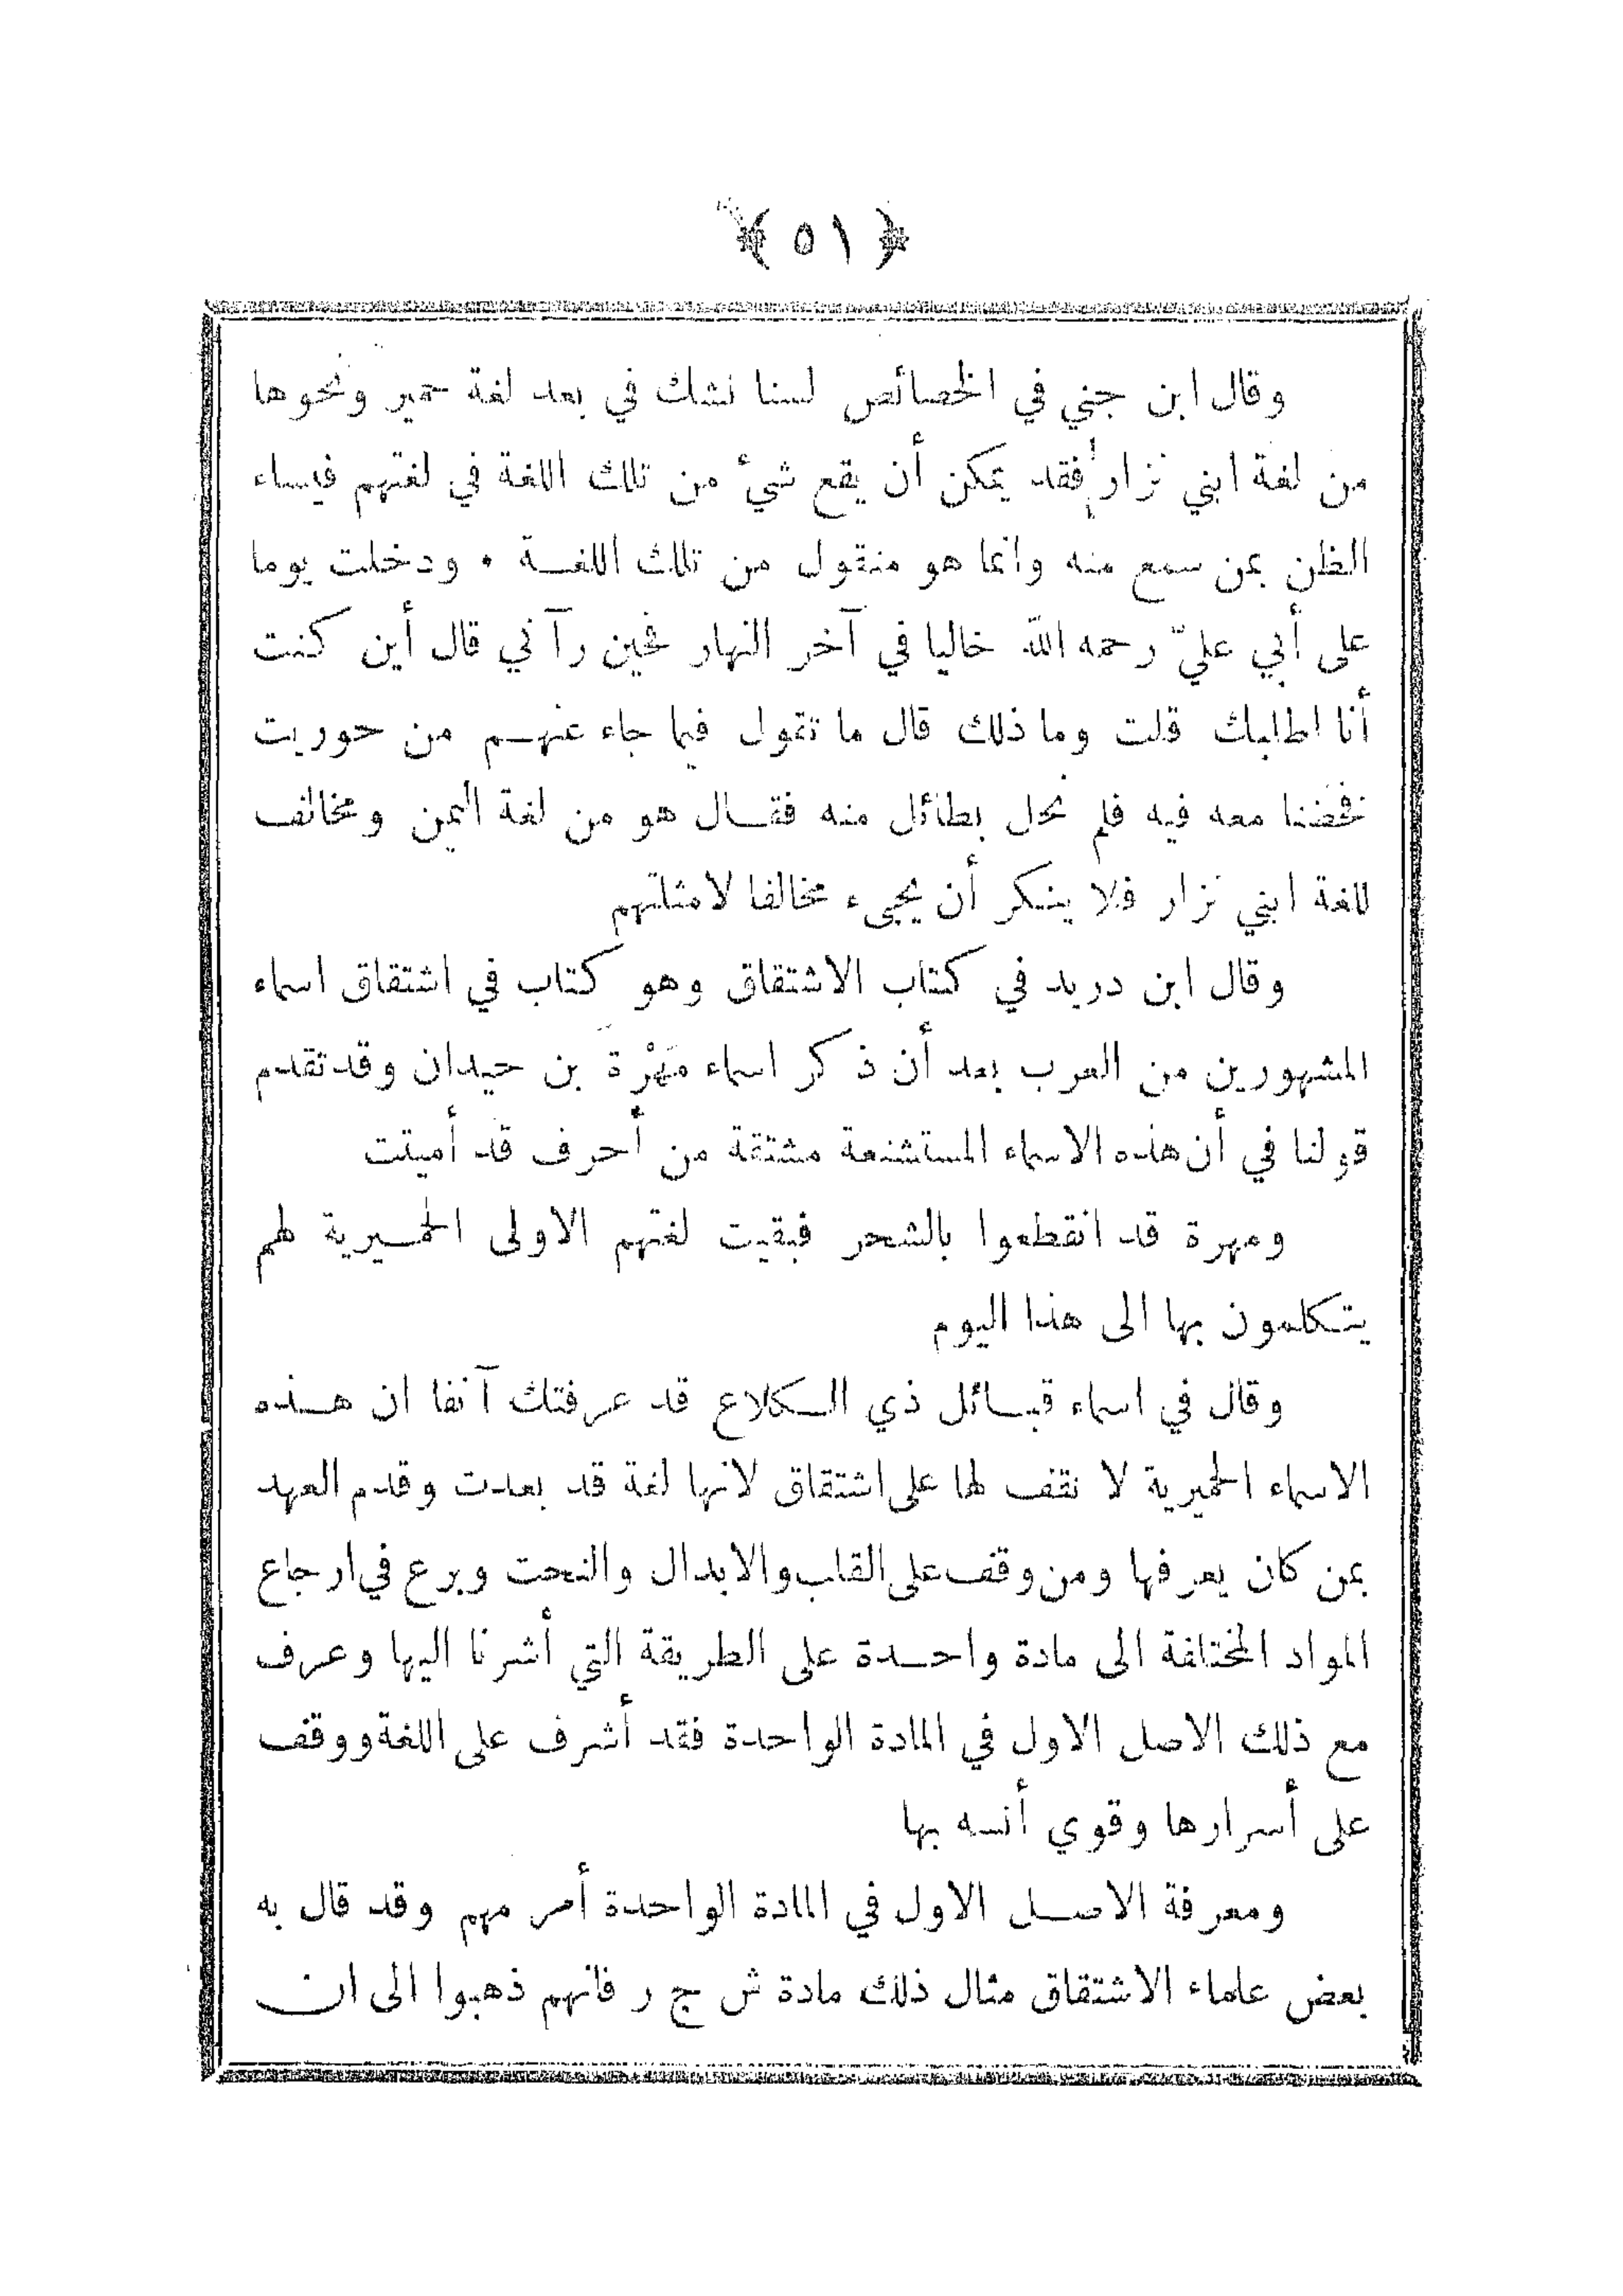 ﴿ ٥١ ﴾
وقال ابن جني في الخصائص لسنا نشك في بعد لغة حمير ونحوها
من لغة ابني نزار فقد يمكن أن يقع شيء من تلك اللغة في لغتهم فيساء
الظن بمن سمع منه وانما هو منقول من تلك اللغة ٠ ودخلت يوما
على أبي عليّ رحمه الله خاليا في آخر النهار فحين رآني قال أين كنت
أنا اطلبك قلت وما ذلك قال ما تقول فيما جاء عنهم من حوريت
فخضنا معه فيه فلم نحل بطائل منه فقال هو من لغة اليمن ومخالف
للغة ابني نزار فلا ينكر أن يجيء مخالفا لامثلتهم
وقال ابن دريد في كتاب الاشتقاق وهو كتاب في اشتقاق اسماء
المشهورين من العرب بعد أن ذكر اسماء مَهْرَة بن حيدان وقد تقدم
قولنا في أن هذه الاسماء المستشنعة مشتقة من أحرف قد أميتت
ومهرة قد انقطعوا بالشحر فبقيت لغتهم الاولى الحميرية لهم
يتكلمون بها الى هذا اليوم
وقال في اسماء قبائل ذي الكلاع قد عرفتك آنفا ان هذه
الاسماء الحميرية لا نقف لها على اشتقاق لانها لغة قد بعدت وقدم العهد
بمن كان يعرفها ومن وقف على القلب والابدال والنحت وبرع في ارجاع
المواد المختلفة الى مادة واحدة على الطريقة التي أشرنا اليها وعرف
مع ذلك الاصل الاول في المادة الواحدة فقد أشرف على اللغة ووقف
على أسرارها وقوي أنسه بها
ومعرفة الاصل الاول في المادة الواحدة أمر مهم وقد قال به
بعض علماء الاشتقاق مثال ذلك مادة ش ج ر فانهم ذهبوا الى ان